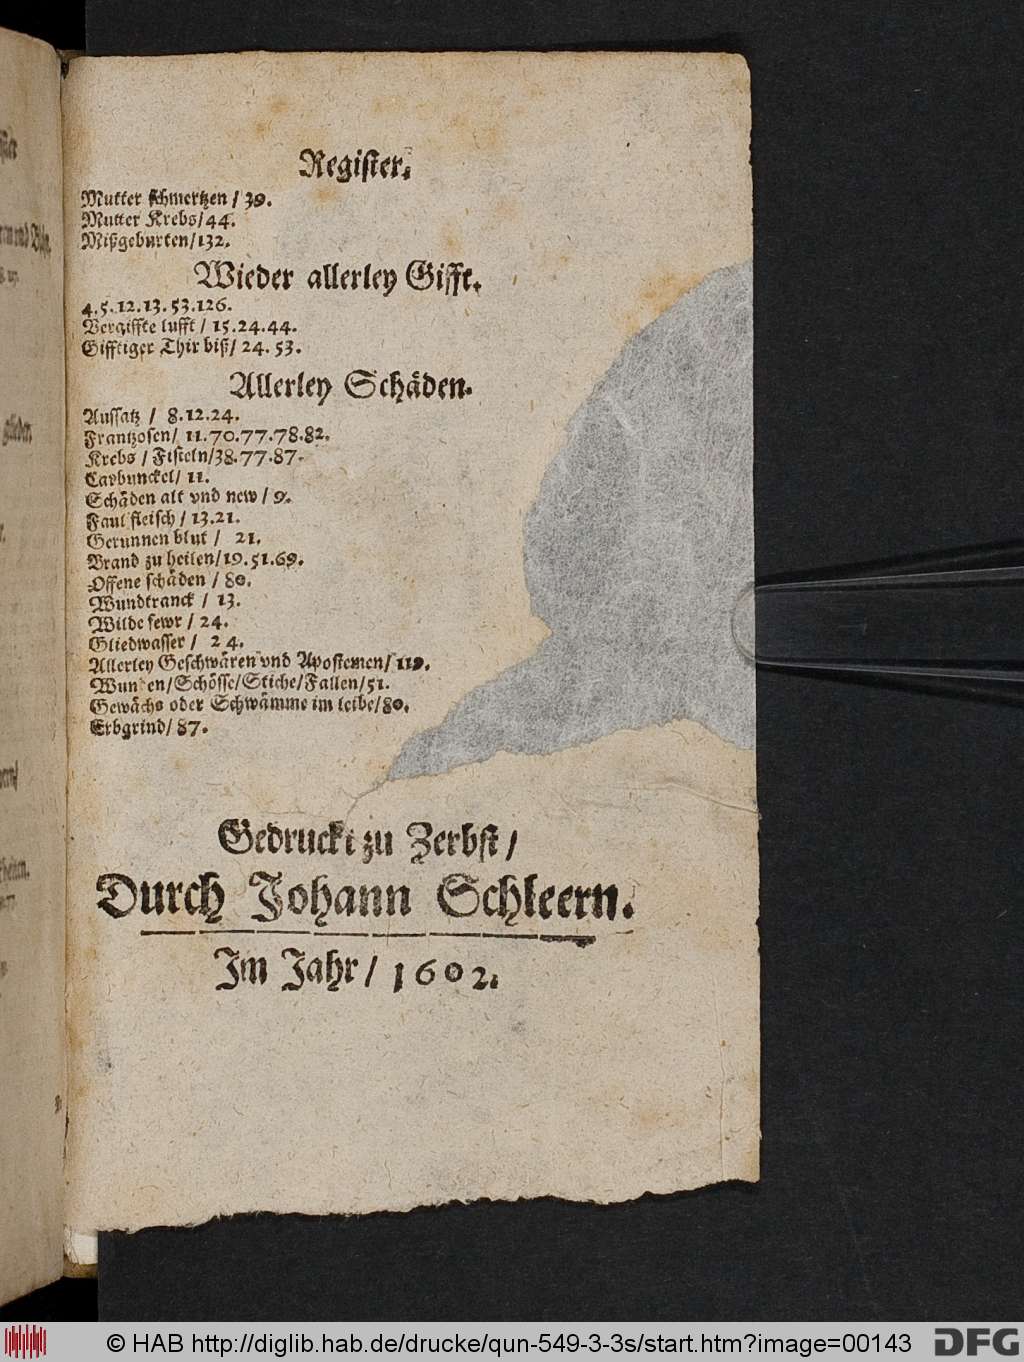 Register.
Mutter schmertzen / 39.
Mutter Krebs/44.
Mißgeburten/132.
Wieder allerley Gifft.
4.5.12.13.53.126.
Vergiffte lufft / 15.24.44.
Gifftiger Thir biß/ 24. 53.
Allerley Schäden.
Aussatz / 8.12.24.
Frantzosen/ 11.70.77.78.82.
Krebs / Fisteln/38.77.87.
Carbunckel/ 11.
Schäden alt vnd new / 9.
Faul fleisch / 13.21.
Gerunnen blut / 21.
Brand zu heilen/19.51.69.
Offene schäden / 80.
Wundtranck / 13.
Wilde fewr / 24.
Gliedwasser / 24.
Allerley Geschwären vnd Apostemen/ 119.
Wunden/Schösse/Stiche/Fallen/51.
Gewächs oder Schwämme im leibe/80.
Erbgrind/ 87.
Gedruckt zu Zerbst /
Durch Johann Schleern.
Im Jahr / 1602.
© HAB http://diglib.hab.de/drucke/qun-549-3-3s/start.htm?image=00143
DFG